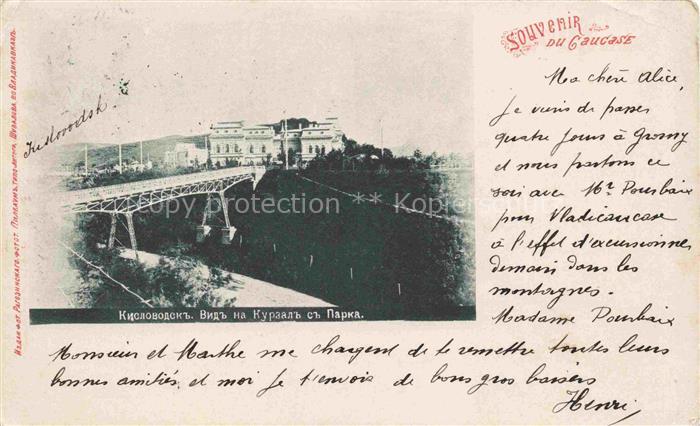 Souvenir
du Caucase
Ma chère Alice,
Je viens de passer
quatre jours à Grosny
et nous partons ce
soir avec Mr Pourbaix
pour Vladicaucase
à l'effet d'excursionner
demain dans les
montagnes.
Madame Pourbaix
Monsieur et Marthe me chargent de te remettre toutes leurs
bonnes amitiés et moi je t'envoie de bons gros baisers
Henri
Кисловодскъ. Видъ на Курзалъ съ Парка.
copy protection ** Kopierschutz